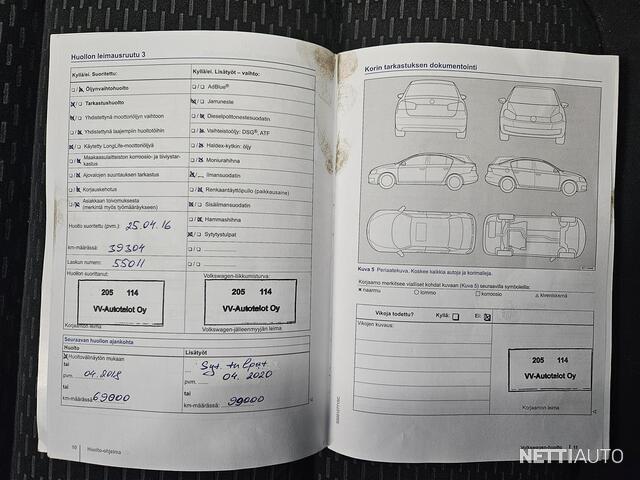 Huollon leimausruutu 3
Kyllä/ei. Suoritettu:
Öljynvaihtohuolto
Tarkastushuolto
Yhdistettynä moottoriöljyn vaihtoon
Yhdistettynä laajempiin huoltotöihin
Käytetty LongLife-moottoriöljyä
Maakaasulaitteiston korroosio- ja tiiviystar-
kastus
Ajovalojen suuntauksen tarkastus
Korjauskehotus
Asiakkaan toivomuksesta
(merkintä myös työmääräykseen)
Huolto suoritettu (pvm.): 25.04.16
km-määrässä: 39304
Laskun numero: 55011
Huollon suorittanut:
205 114
VV-Autotalot Oy
Korjaamon leima
Kyllä/ei. Lisätyöt – vaihto:
AdBlue®
Jarruneste
Dieselpolttonestesuodatin
Vaihteistoöljy: DSG®, ATF
Haldex-kytkin: öljy
Moniurahihna
Ilmansuodatin
Renkaantäyttöpullo (paikkausaine)
Sisäilmansuodatin
Hammashihna
Sytytystulpat
Volkswagen-liikkumisturva:
205 114
VV-Autotalot Oy
Volkswagen-jälleenmyyjän leima
Seuraavan huollon ajankohta
Huolto
Huoltovälinäytön mukaan
tai
pvm. 04.2018
tai
km-määrässä: 69000
Lisätyöt
Syt. tulpat
pvm. 04.2020
tai
km-määrässä: 99000
10 Huolto-ohjelma
Korin tarkastuksen dokumentointi
Kuva 5 Periaatekuva. Koskee kaikkia autoja ja korimalleja.
Korjaamo merkitsee vialliset kohdat kuvaan (Kuva 5) seuraavilla symboleilla:
naarmu lommo korroosio kiveniskemä
Vikoja todettu? Kyllä: Ei:
Vikojen kuvaus:
205 114
VV-Autotalot Oy
Korjaamon leima
Volkswagen-huolto 11
NETTIAUTO